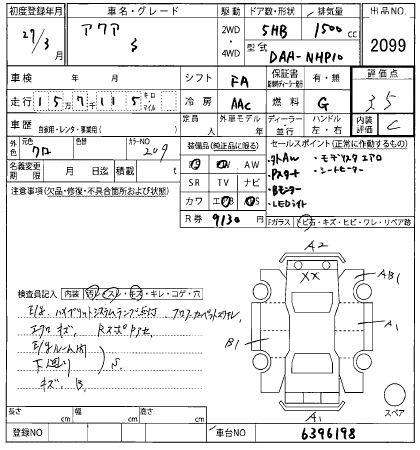 初度登録年月 車名・グレード 駆動 ドア数・形状 排気量 出品NO.
27/3月 アクア S 2WD・4WD 5HB 1500cc 2099
型式 DAA-NHP10
車検 年 月 シフト FA 保証書 有・無 評価点
走行 15万7千115 キロ・マイル 冷房 AAC 燃料 G 3.5
車歴 自家用・レンタ・事業用( ) 定員 人 外車モデル 年 ディーラー 並行 ハンドル 左・右 内装評価 C
外色 元色 クロ 色替 カラーNO 209 装備品(純正品に限る) セールスポイント(正常に作動するもの)
PS PW AW
名義変更期限 月 日迄 積載 t SR TV ナビ
注意事項(欠品・修復・不具合箇所および状態) カワ エアB ABS
・Pスタート
・LEDライト
・シートヒーター
R券 9130円 Fガラス トビ石・キズ・ヒビ・ワレ・リペア跡
A2
XX
AB1
検査員記入 内装 汚レ・スレ・キズ・キレ・コゲ・穴
E/g ハイブリットシステムランプ点灯
エアロ キズ、
E/gルーム内
下廻り S.
キズ、B.
B1
A1
A1
スペア
長さ cm 幅 cm 高さ cm
登録NO 車台NO 6396198